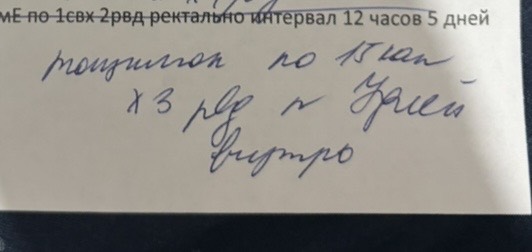 мЕ по 1свх 2рвд ректально интервал 12 часов 5 дней
по 15 кап
х 3 рвд дней
внутрь